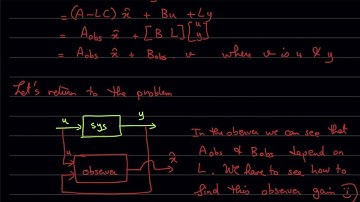 = (A-LC) x̂ + Bu + Ly
= Aobs x̂ + [B L] [u y]
= Aobs x̂ + Bobs v where v is u & y
Let's return to the problem
u sys y
u observer x̂
In the observer we can see that
Aobs & Bobs depend on
L. We have to see how to
find this observer gain